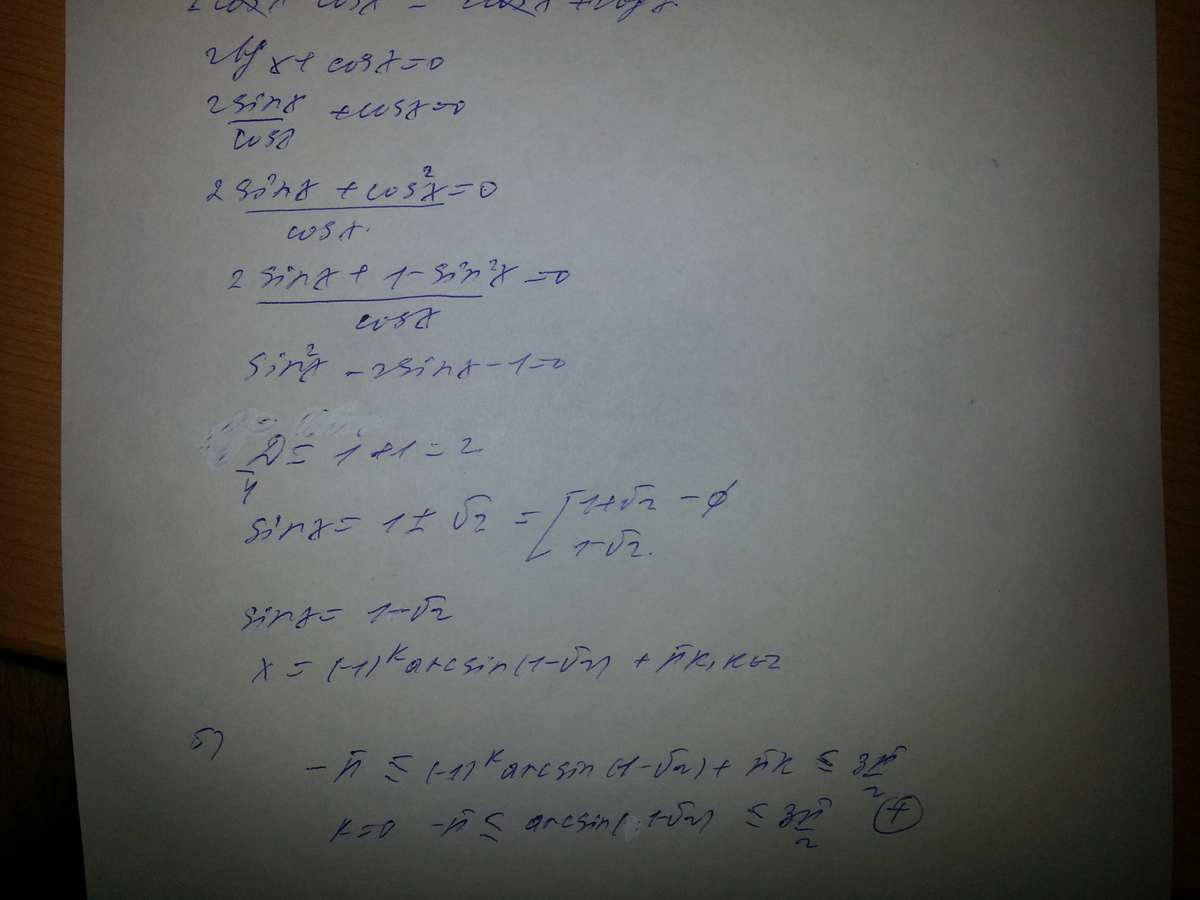 2tg x + cos x = 0
2 sin x / cos x + cos x = 0
2 sin x + cos²x / cos x = 0
2 sin x + 1 - sin²x / cos x = 0
sin²x - 2 sin x - 1 = 0
D/4 = 1 + 1 = 2
sin x = 1 ± √2 = [ 1+√2 - ∅
1-√2.
sin x = 1-√2
x = (-1)^k arcsin(1-√2) + πk, k∈Z
б)
-π ≤ (-1)^k arcsin(1-√2) + πk ≤ 3π/2
k=0 -π ≤ arcsin(1-√2) ≤ 3π/2 (+)